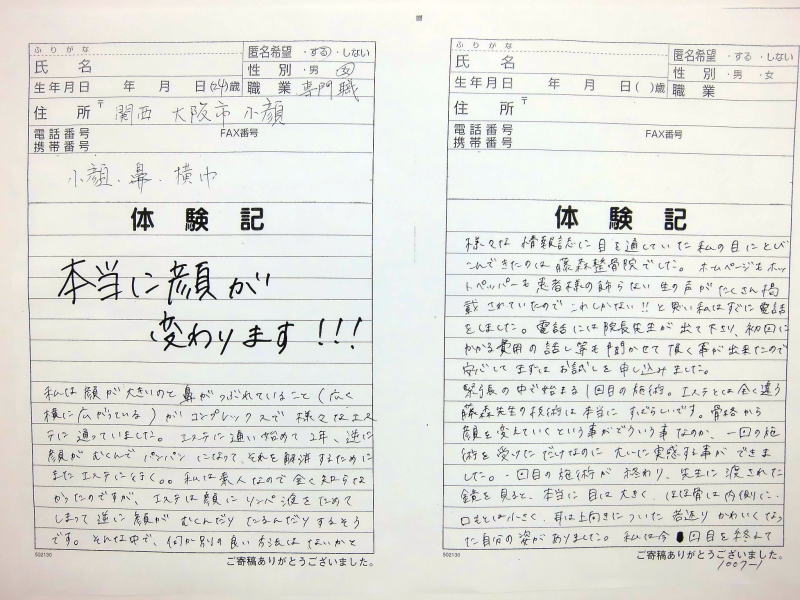 ふりがな
氏 名
匿名希望 ・する・しない
性 別 ・男 ・女
生年月日 年 月 日(24)歳
職 業 専門職
住 所 〒 関西 大阪市 小顔
電話番号 FAX番号
携帯番号
小顔・鼻・横巾
体 験 記
本当に顔が
変わります!!!
私は顔が大きいのと鼻がつぶれていること(広く
横に広がっている)がコンプレックスで様々なエス
テに通っていました。エステに通い始めて2年、逆に
顔がむくんでパンパンになって、それを解消するために
またエステに行く。。私は素人なので全く知らな
かったのですが、エステは顔にリンパ液をためて
しまって逆に顔がむくんだりたるんだりするそう
です。そんな中で、何か別の良い方法はないかと
502130
ご寄稿ありがとうございました。
ふりがな
氏 名
匿名希望 ・する・しない
性 別 ・男 ・女
生年月日 年 月 日( )歳
職 業
住 所 〒
電話番号 FAX番号
携帯番号
体 験 記
様々な情報誌に目を通していた私の目にとび
こんできたのは藤森整骨院でした。ホームページもホッ
トペッパーも患者様の飾らない生の声がたくさん掲
載されていたのでこれしかない!!と思い私はすぐに電話
をしました。電話には院長先生が出て下さり、初回に
かかる費用の話し等も聞かせて頂く事が出来たので
安心してまずはお試しを申し込みました。
緊張の中で始まる1回目の施術。エステとは全く違う
藤森先生の技術は本当にすばらしいです。骨格から
顔を変えていくという事がどういう事なのか、一回の施
術を受けただけなのに大いに実感する事ができま
した。一回目の施術が終わり、先生に渡された
鏡を見ると、本当に目は大きく、ほほ骨は内側に、
口もとは小さく、耳は上向きについた若返りかわいくなっ
た自分の姿がありました。私は今 回目を終えて
502130
ご寄稿ありがとうございました。
1007-1